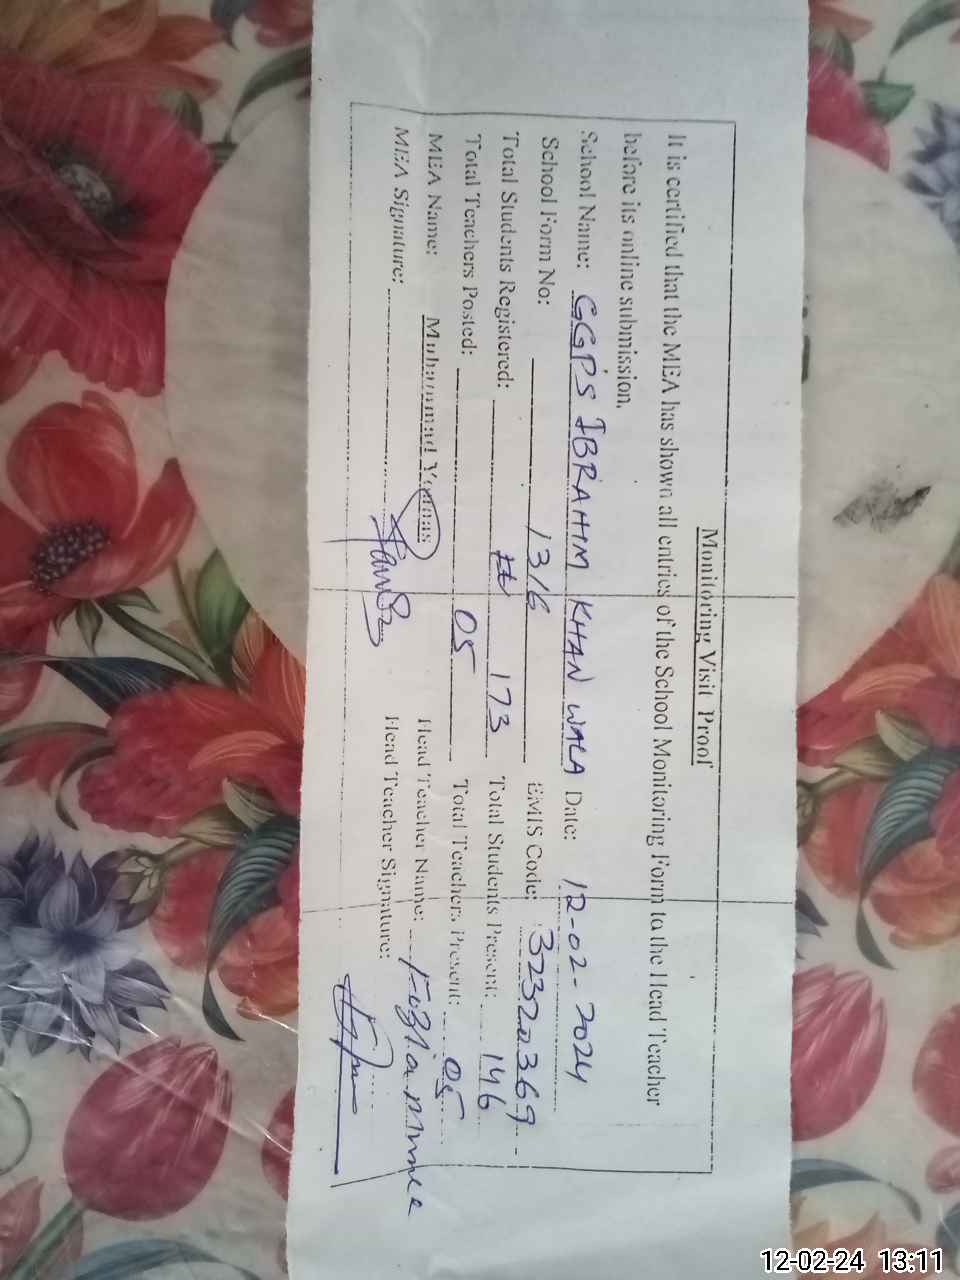 Monitoring Visit Proof
It is certified that the MEA has shown all entries of the School Monitoring Form to the Head Teacher
before its online submission.
School Name: GGPS IBRAHIM KHAN WALA Date: 12-02-2024
School Form No: 1316 EMIS Code: 32320369
Total Students Registered: 173 Total Students Present: 146
Total Teachers Posted: 05 Total Teachers Present: 05
MEA Name: Muhammad Younas Head Teacher Name:
MEA Signature: Head Teacher Signature:
12-02-24 13:11